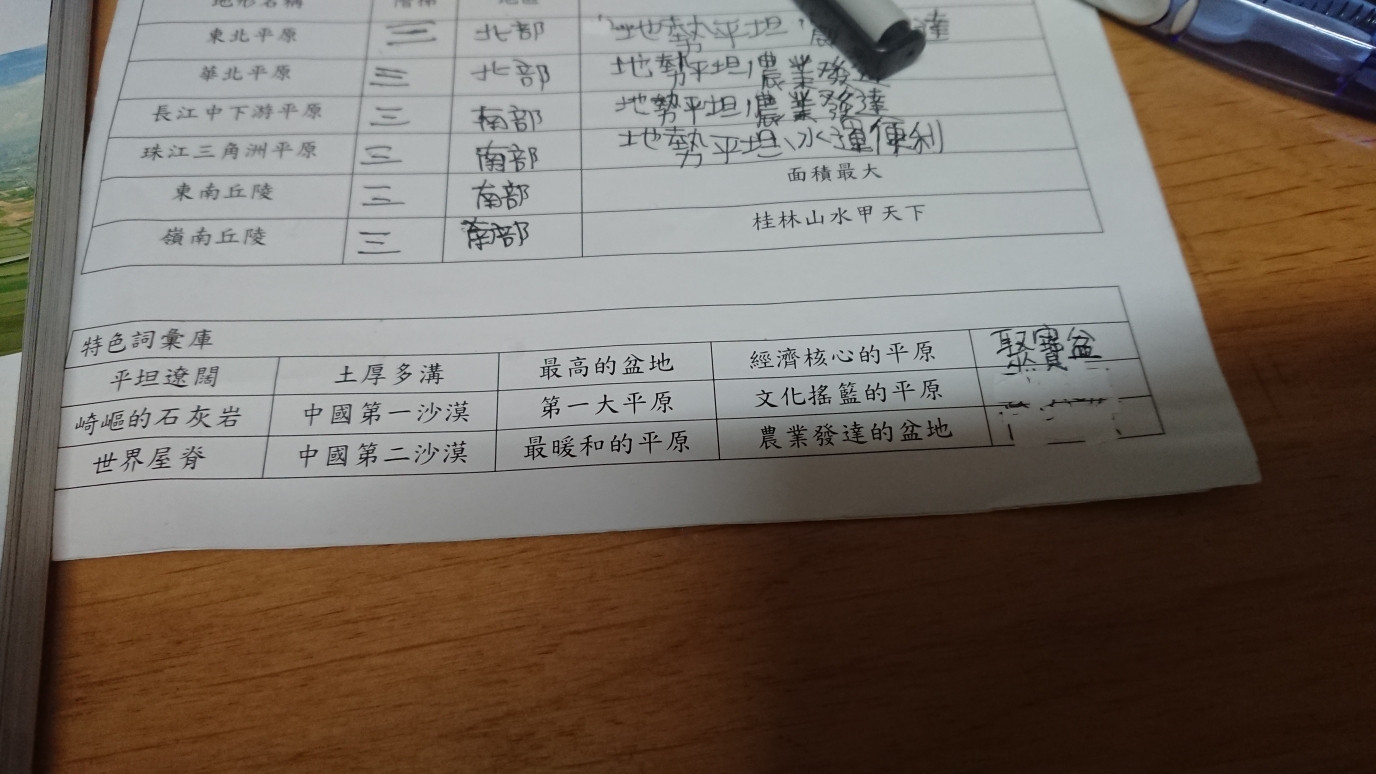 地形名稱 階梯 地區
東北平原 三 北部 地勢平坦,農 達
華北平原 三 北部 地勢平坦,農業發達
長江中下游平原 三 南部 地勢平坦,農業發達
珠江三角洲平原 三 南部 地勢平坦、水運便利
東南丘陵 三 南部 面積最大
嶺南丘陵 三 南部 桂林山水甲天下
特色詞彙庫
平坦遼闊 土厚多溝 最高的盆地 經濟核心的平原 聚寶盆
崎嶇的石灰岩 中國第一沙漠 第一大平原 文化搖籃的平原
世界屋脊 中國第二沙漠 最暖和的平原 農業發達的盆地